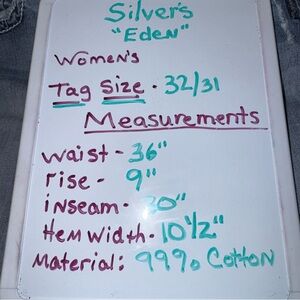 Silver's
"Eden"
Women's
Tag Size - 32/31
Measurements
waist - 36"
rise - 9"
inseam - 30"
Hem Width - 10 1/2"
Material: 99% Cotton